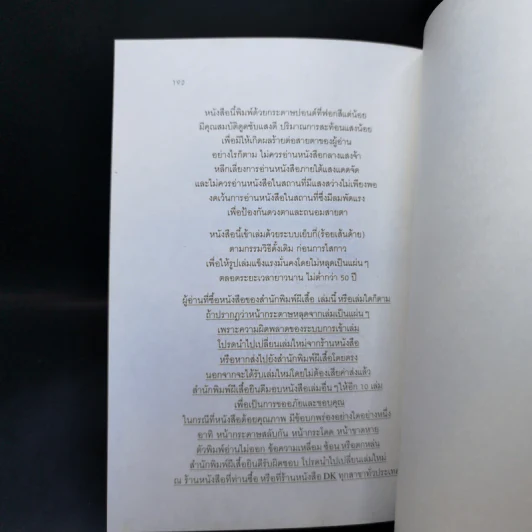 192
หนังสือนี้พิมพ์ด้วยกระดาษปอนด์ที่ฟอกสีแต่น้อย
มีคุณสมบัติดูดซับแสงดี ปริมาณการสะท้อนแสงน้อย
เพื่อมิให้เกิดผลร้ายต่อสายตาของผู้อ่าน
อย่างไรก็ตาม ไม่ควรอ่านหนังสือกลางแสงจ้า
หลีกเลี่ยงการอ่านหนังสือภายใต้แสงแดดจัด
และไม่ควรอ่านหนังสือในสถานที่มีแสงสว่างไม่เพียงพอ
งดเว้นการอ่านหนังสือในสถานที่ซึ่งมีลมพัดแรง
เพื่อป้องกันดวงตาและถนอมสายตา
หนังสือนี้เข้าเล่มด้วยระบบเย็บกี่(ร้อยเส้นด้าย)
ตามกรรมวิธีดั้งเดิม ก่อนการไสกาว
เพื่อให้รูปเล่มแข็งแรงมั่นคงโดยไม่หลุดเป็นแผ่นๆ
ตลอดระยะเวลายาวนาน ไม่ต่ำกว่า 50 ปี
ผู้อ่านที่ซื้อหนังสือของสำนักพิมพ์ผีเสื้อ เล่มนี้ หรือเล่มใดก็ตาม
ถ้าปรากฏว่าหน้ากระดาษหลุดจากเล่มเป็นแผ่นๆ
เพราะความผิดพลาดของระบบการเข้าเล่ม
โปรดนำไปเปลี่ยนเล่มใหม่จากร้านหนังสือ
หรือหากส่งไปยังสำนักพิมพ์ผีเสื้อโดยตรง
นอกจากจะได้รับเล่มใหม่โดยไม่ต้องเสียค่าส่งแล้ว
สำนักพิมพ์ผีเสื้อยินดีมอบหนังสือเล่มอื่นๆให้อีก 10 เล่ม
เพื่อเป็นการขออภัยและขอบคุณ
ในกรณีที่หนังสือด้อยคุณภาพ มีข้อบกพร่องอย่างใดอย่างหนึ่ง
อาทิ หน้ากระดาษสลับกัน หน้ากระโดด หน้าขาดหาย
ตัวพิมพ์อ่านไม่ออก ข้อความเหลื่อม ซ้อน หรือตกหล่น
สำนักพิมพ์ผีเสื้อยินดีรับผิดชอบ โปรดนำไปเปลี่ยนเล่มใหม่
ณ ร้านหนังสือที่ท่านซื้อ หรือที่ร้านหนังสือ DK ทุกสาขาทั่วประเทศ